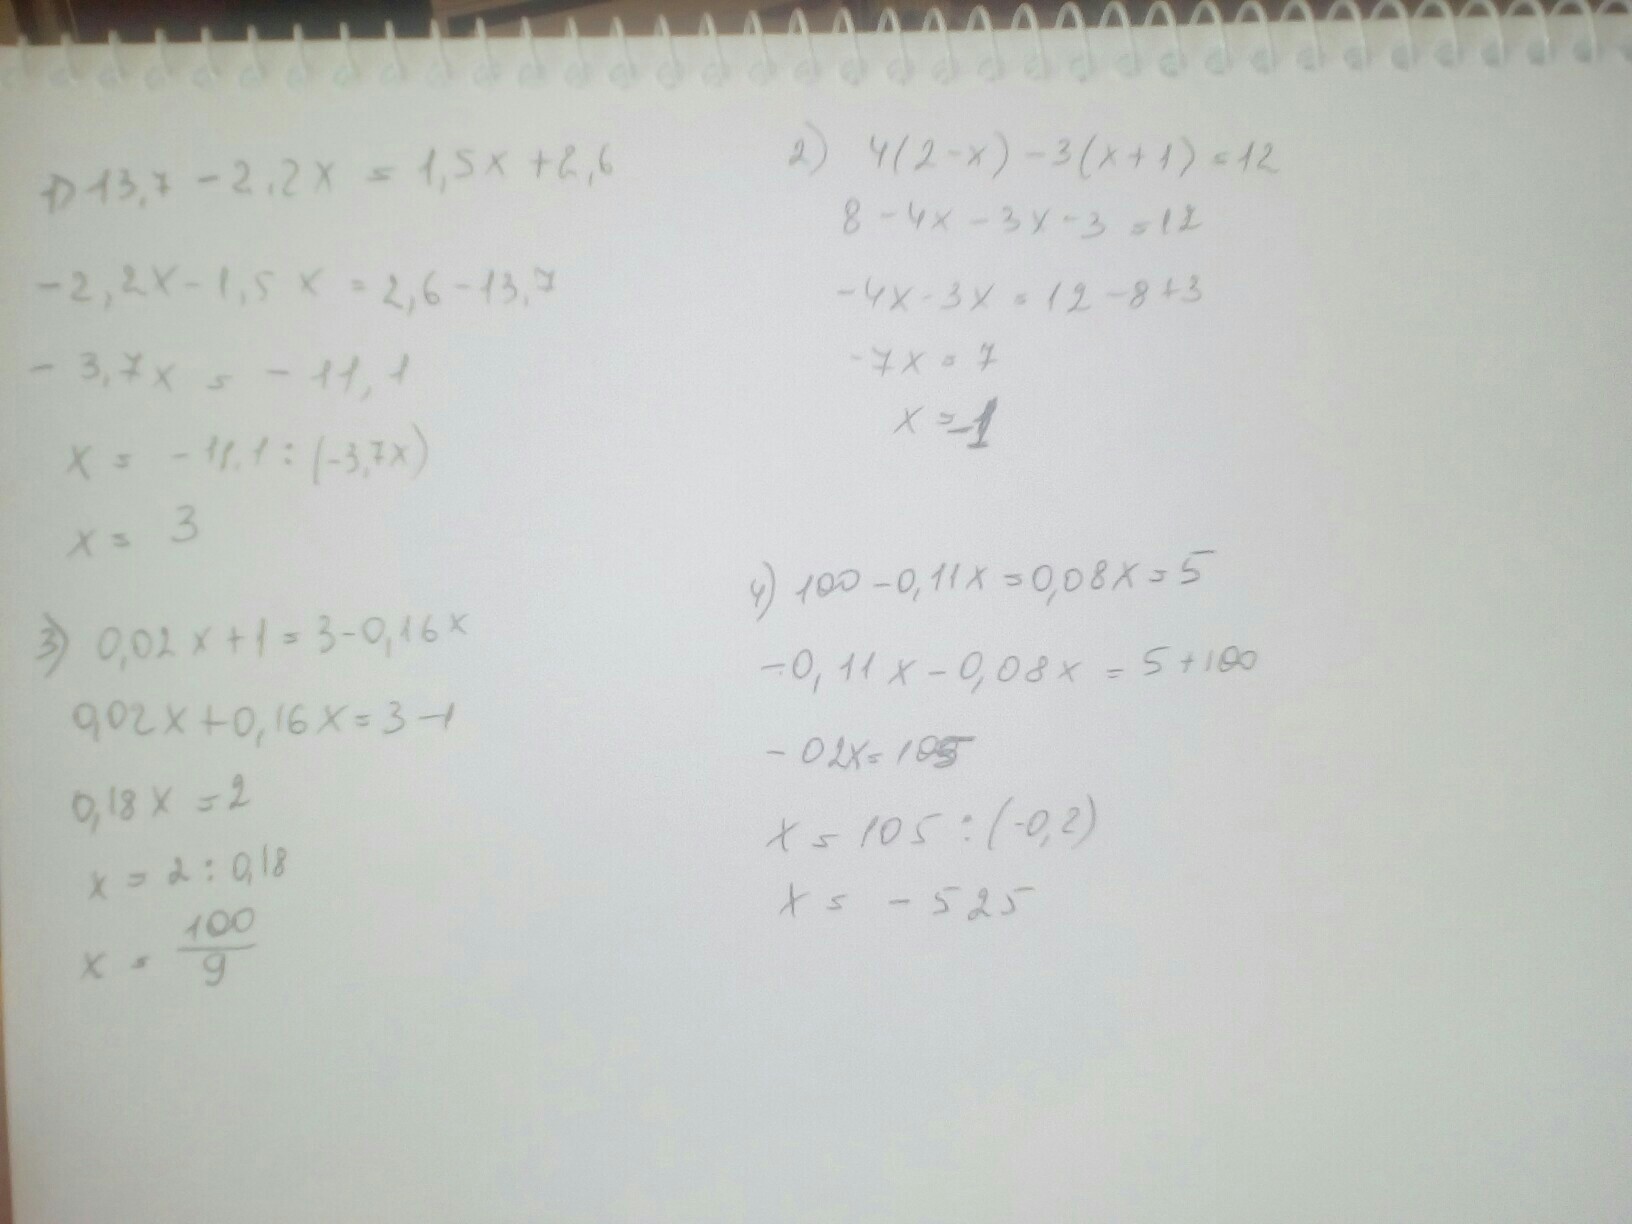 1) 13,7 - 2,2x = 1,5x + 2,6
-2,2x - 1,5x = 2,6 - 13,7
- 3,7x = - 11,1
x = - 11,1 : (-3,7x)
x = 3
2) 4(2-x) - 3(x+1) = 12
8 - 4x - 3x - 3 = 12
-4x - 3x = 12 - 8 + 3
-7x = 7
x = -1
3) 0,02x + 1 = 3 - 0,16x
0,02x + 0,16x = 3 - 1
0,18x = 2
x = 2 : 0,18
x = 100/9
4) 100 - 0,11x = 0,08x = 5
-0,11x - 0,08x = 5 + 100
- 02x = 105
x = 105 : (-0,2)
x = - 525